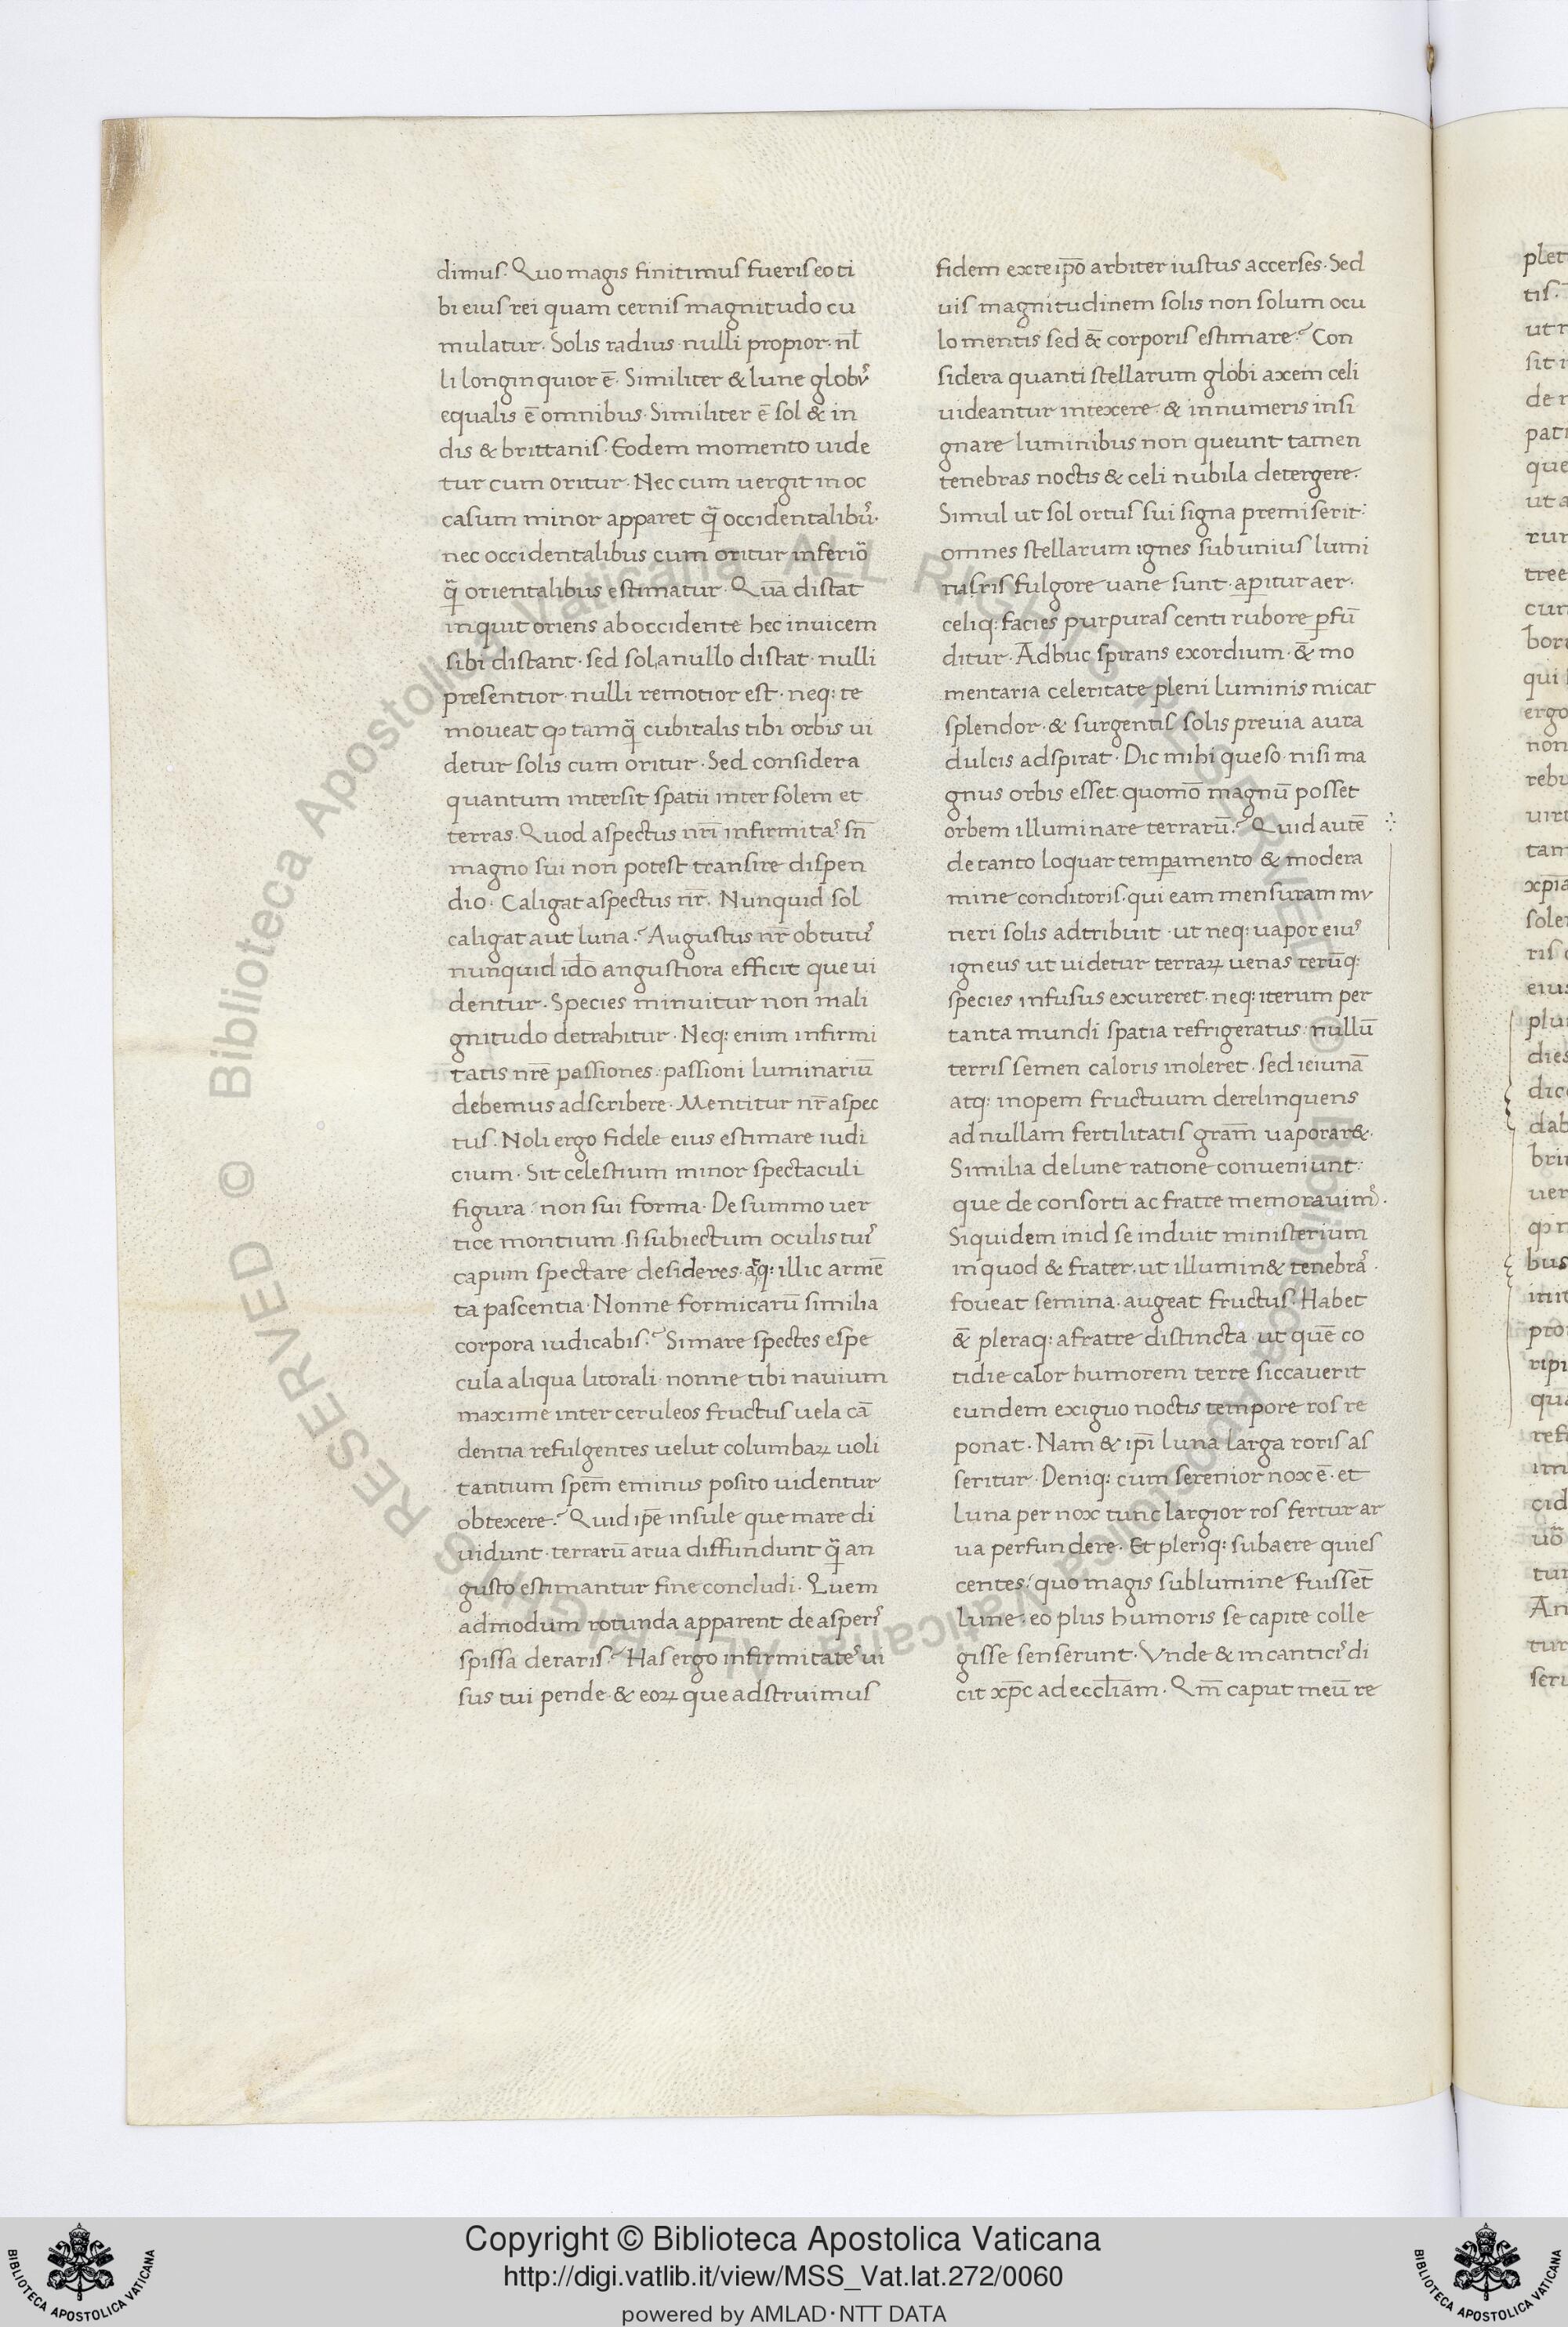 dimus. Quo magis finitimus fueris eo ti
bi eius rei quam cernis magnitudo cu
mulatur. Solis radius nulli propior. nł
li longinquior ē. Similiter & lune globꝰ
equalis ē omnibus. Similiter ē sol & in
dis & brittanis. Eodem momento uide
tur cum oritur. Nec cum uergit in oc
casum minor apparet q̃ occidentalibꝰ.
nec occidentalibus cum oritur inferio᷑
q̃ orientalibus estimatur. Quā distat
inquit oriens ab occidente hec inuicem
sibi distant. sed sol a nullo distat. nulli
presentior. nulli remotior est. neq: te
moueat ꝙ tamq̃ cubitalis tibi orbis ui
detur solis cum oritur. Sed considera
quantum intersit spatii inter solem et
terras. Quod aspectus nr̄i infirmitaˢ sn̄
magno sui non potest transire dispen
dio. Caligat aspectus nr̄. Nunquid sol
caligat aut luna? Augustus nr̄ obtutuˢ
nunquid id̄o angustiora efficit que ui
dentur. Species minuitur non mali
gnitudo detrahitur. Neq: enim infirmi
tatis nr̄e passiones. passioni luminariū
debemus adscribere. Mentitur nr̄ aspec
tus. Noli ergo fidele eius estimare iudi
cium. Sit celestium minor spectaculi
figura. non sui forma. De summo uer
tice montium. si subiectum oculis tuiˢ
capum spectare desideres. atq: illic armē
ta pascentia. Nonne formicarū similia
corpora iudicabis? Si mare spectes e spe
cula aliqua litorali. nonne tibi nauium
maxime inter ceruleos fructus uela cā
dentia refulgentes uelut columbaꝝ uoli
tantium spēm eminus posito uidentur
obtexere? Quid ip̄e insule que mare di
uidunt. terrarū arua diffundunt q̃ an
gusto estimantur fine concludi. Quem
admodum rotunda apparent de asperiˢ
spissa de raris? Has ergo infirmitateˢ ui
sus tui pende. & eoꝝ que adstruimus
fidem ex te ip̄o arbiter iustus accerses. Sed
uis magnitudinem solis non solum ocu
lo mentis sed &̄ corporis estimare? Con
sidera quanti stellarum globi axem celi
uideantur intexere. & innumeris insi
gnare luminibus non queunt tamen
tenebras noctis & celi nubila detergere.
Simul ut sol ortus sui signa premiserit.
omnes stellarum ignes sub unius lumi
naris fulgore uane sunt. aꝑitur aer.
celiq: facies purpurascenti rubore ꝑfū
ditur. Adhuc spirans exordium. &̄ mo
mentaria celeritate pleni luminis micat
splendor. & surgentis solis preuia aura
dulcis adspirat. Dic mihi queso. nisi ma
gnus orbis esset. quomō magnū posset
orbem illuminare terrarū? Quid autē
de tanto loquar temꝑamento & modera
mine conditoris. qui eam mensuram mu
neri solis adtribuit. ut neq: uapor eiuˢ
igneus ut uidetur terraꝝ uenas rerūq:
species infusus exureret. neq: iterum per
tanta mundi spatia refrigeratus. nullū
terris semen caloris inoleret. sed ieiunā
atq: inopem fructuum derelinquens
ad nullam fertilitatis gram̄ uaporar&.
Similia de lune ratione conueniunt.
que de consorti ac fratre memorauimꝰ.
Siquidem in id se induit ministerium
in quod & frater. ut illumin& tenebraˢ.
foueat semina. augeat fructus. Habet
&̄ pleraq: a fratre distincta. ut quē co
tidie calor humorem terre siccauerit
eundem exiguo noctis tempore ros re
ponat. Nam & ip̄i luna larga roris as
seritur. Deniq: cum serenior nox ē. et
luna per nox tunc largior ros fertur ar
ua perfundere. Et pleriq: sub aere quies
centes. quo magis sub lumine fuisset̄
lune. eo plus humoris se capite colle
gisse senserunt. Vnde & in canticiˢ di
cit xp̄c ad eccłiam. Qm̄ caput meū re
Copyright © Biblioteca Apostolica Vaticana
http://digi.vatlib.it/view/MSS_Vat.lat.272/0060
powered by AMLAD・NTT DATA
BIBLIOTECA APOSTOLICA VATICANA
BIBLIOTECA APOSTOLICA VATICANA